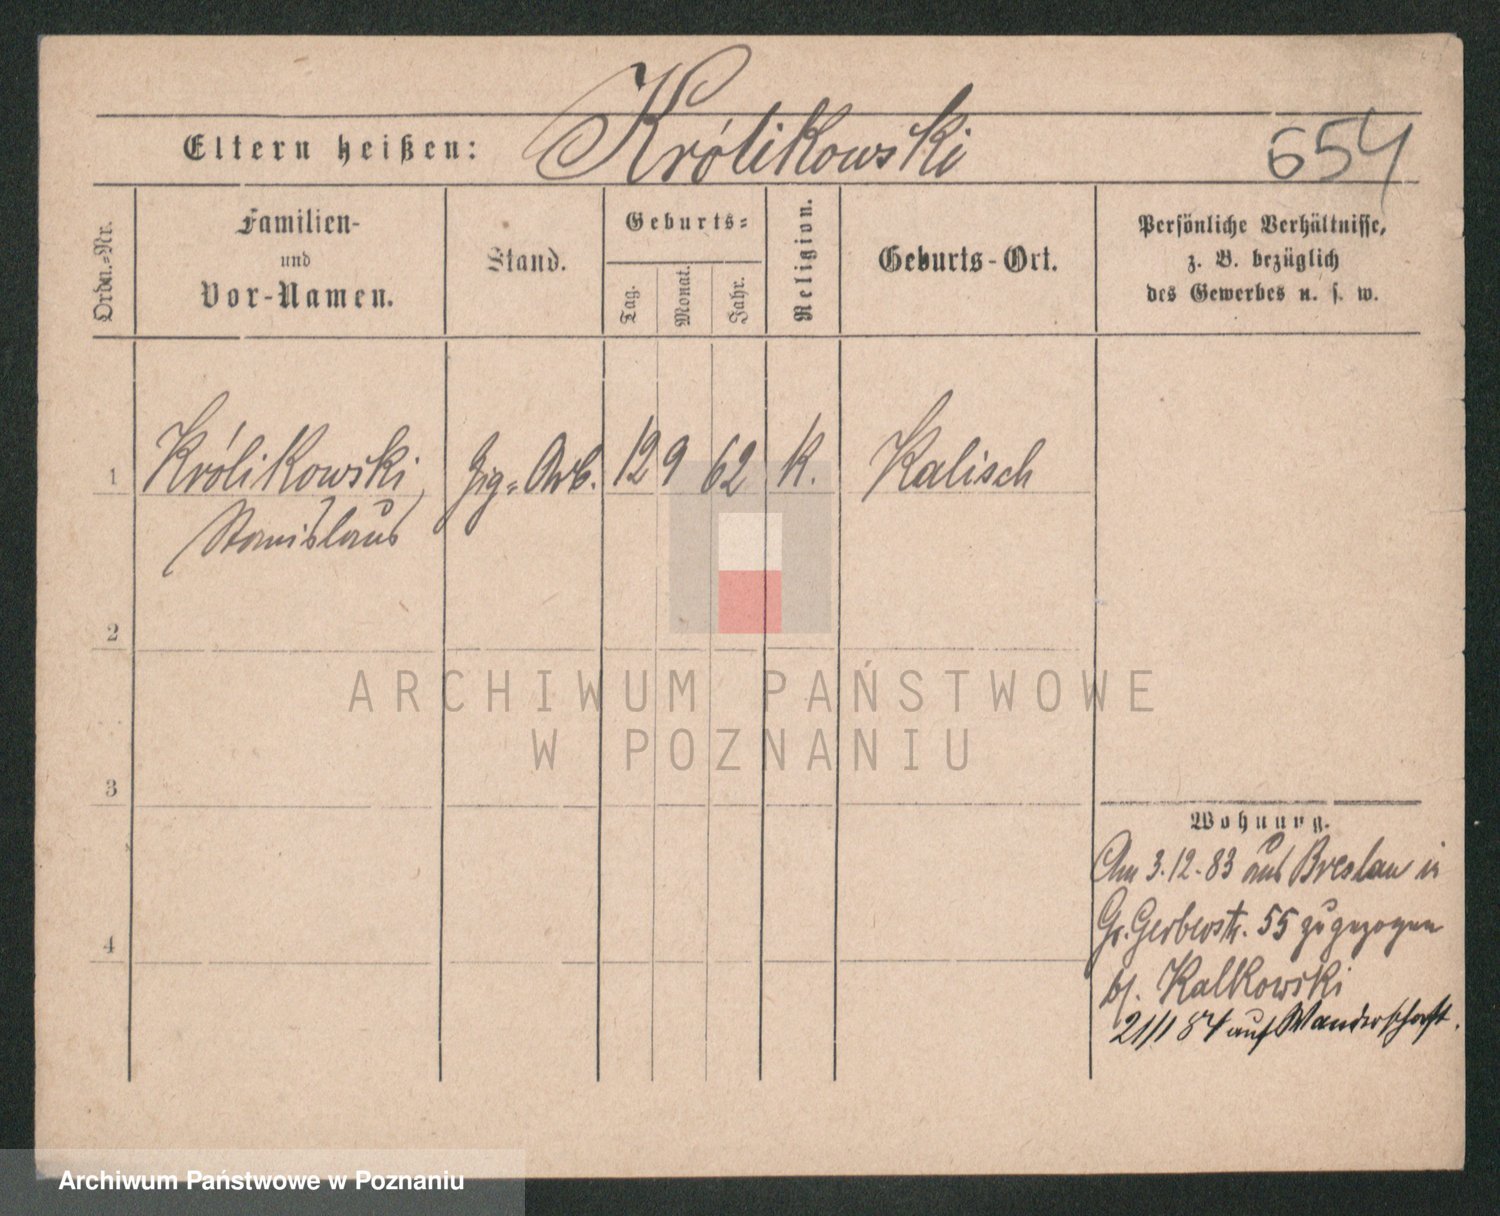 Eltern heißen: Królikowski 654
Ordn.-Nr.
Familien-
und
Vor-Namen.
Stand.
Geburts-
Tag.
Monat.
Jahr.
Religion.
Geburts-Ort.
Persönliche Verhältnisse,
z. B. bezüglich
des Gewerbes u. s. w.
1 Królikowski, Zig. Arb. 12 9 62 K. Kalisch
Stanislaus
2
3
4
Wohnung.
Am 3.12.83 aus Breslau in
Gr. Gerberstr. 55 zugezogen
bj. Kalkowski
21/1 84 auf Wanderschaft.
ARCHIWUM PAŃSTWOWE
W POZNANIU
Archiwum Państwowe w Poznaniu